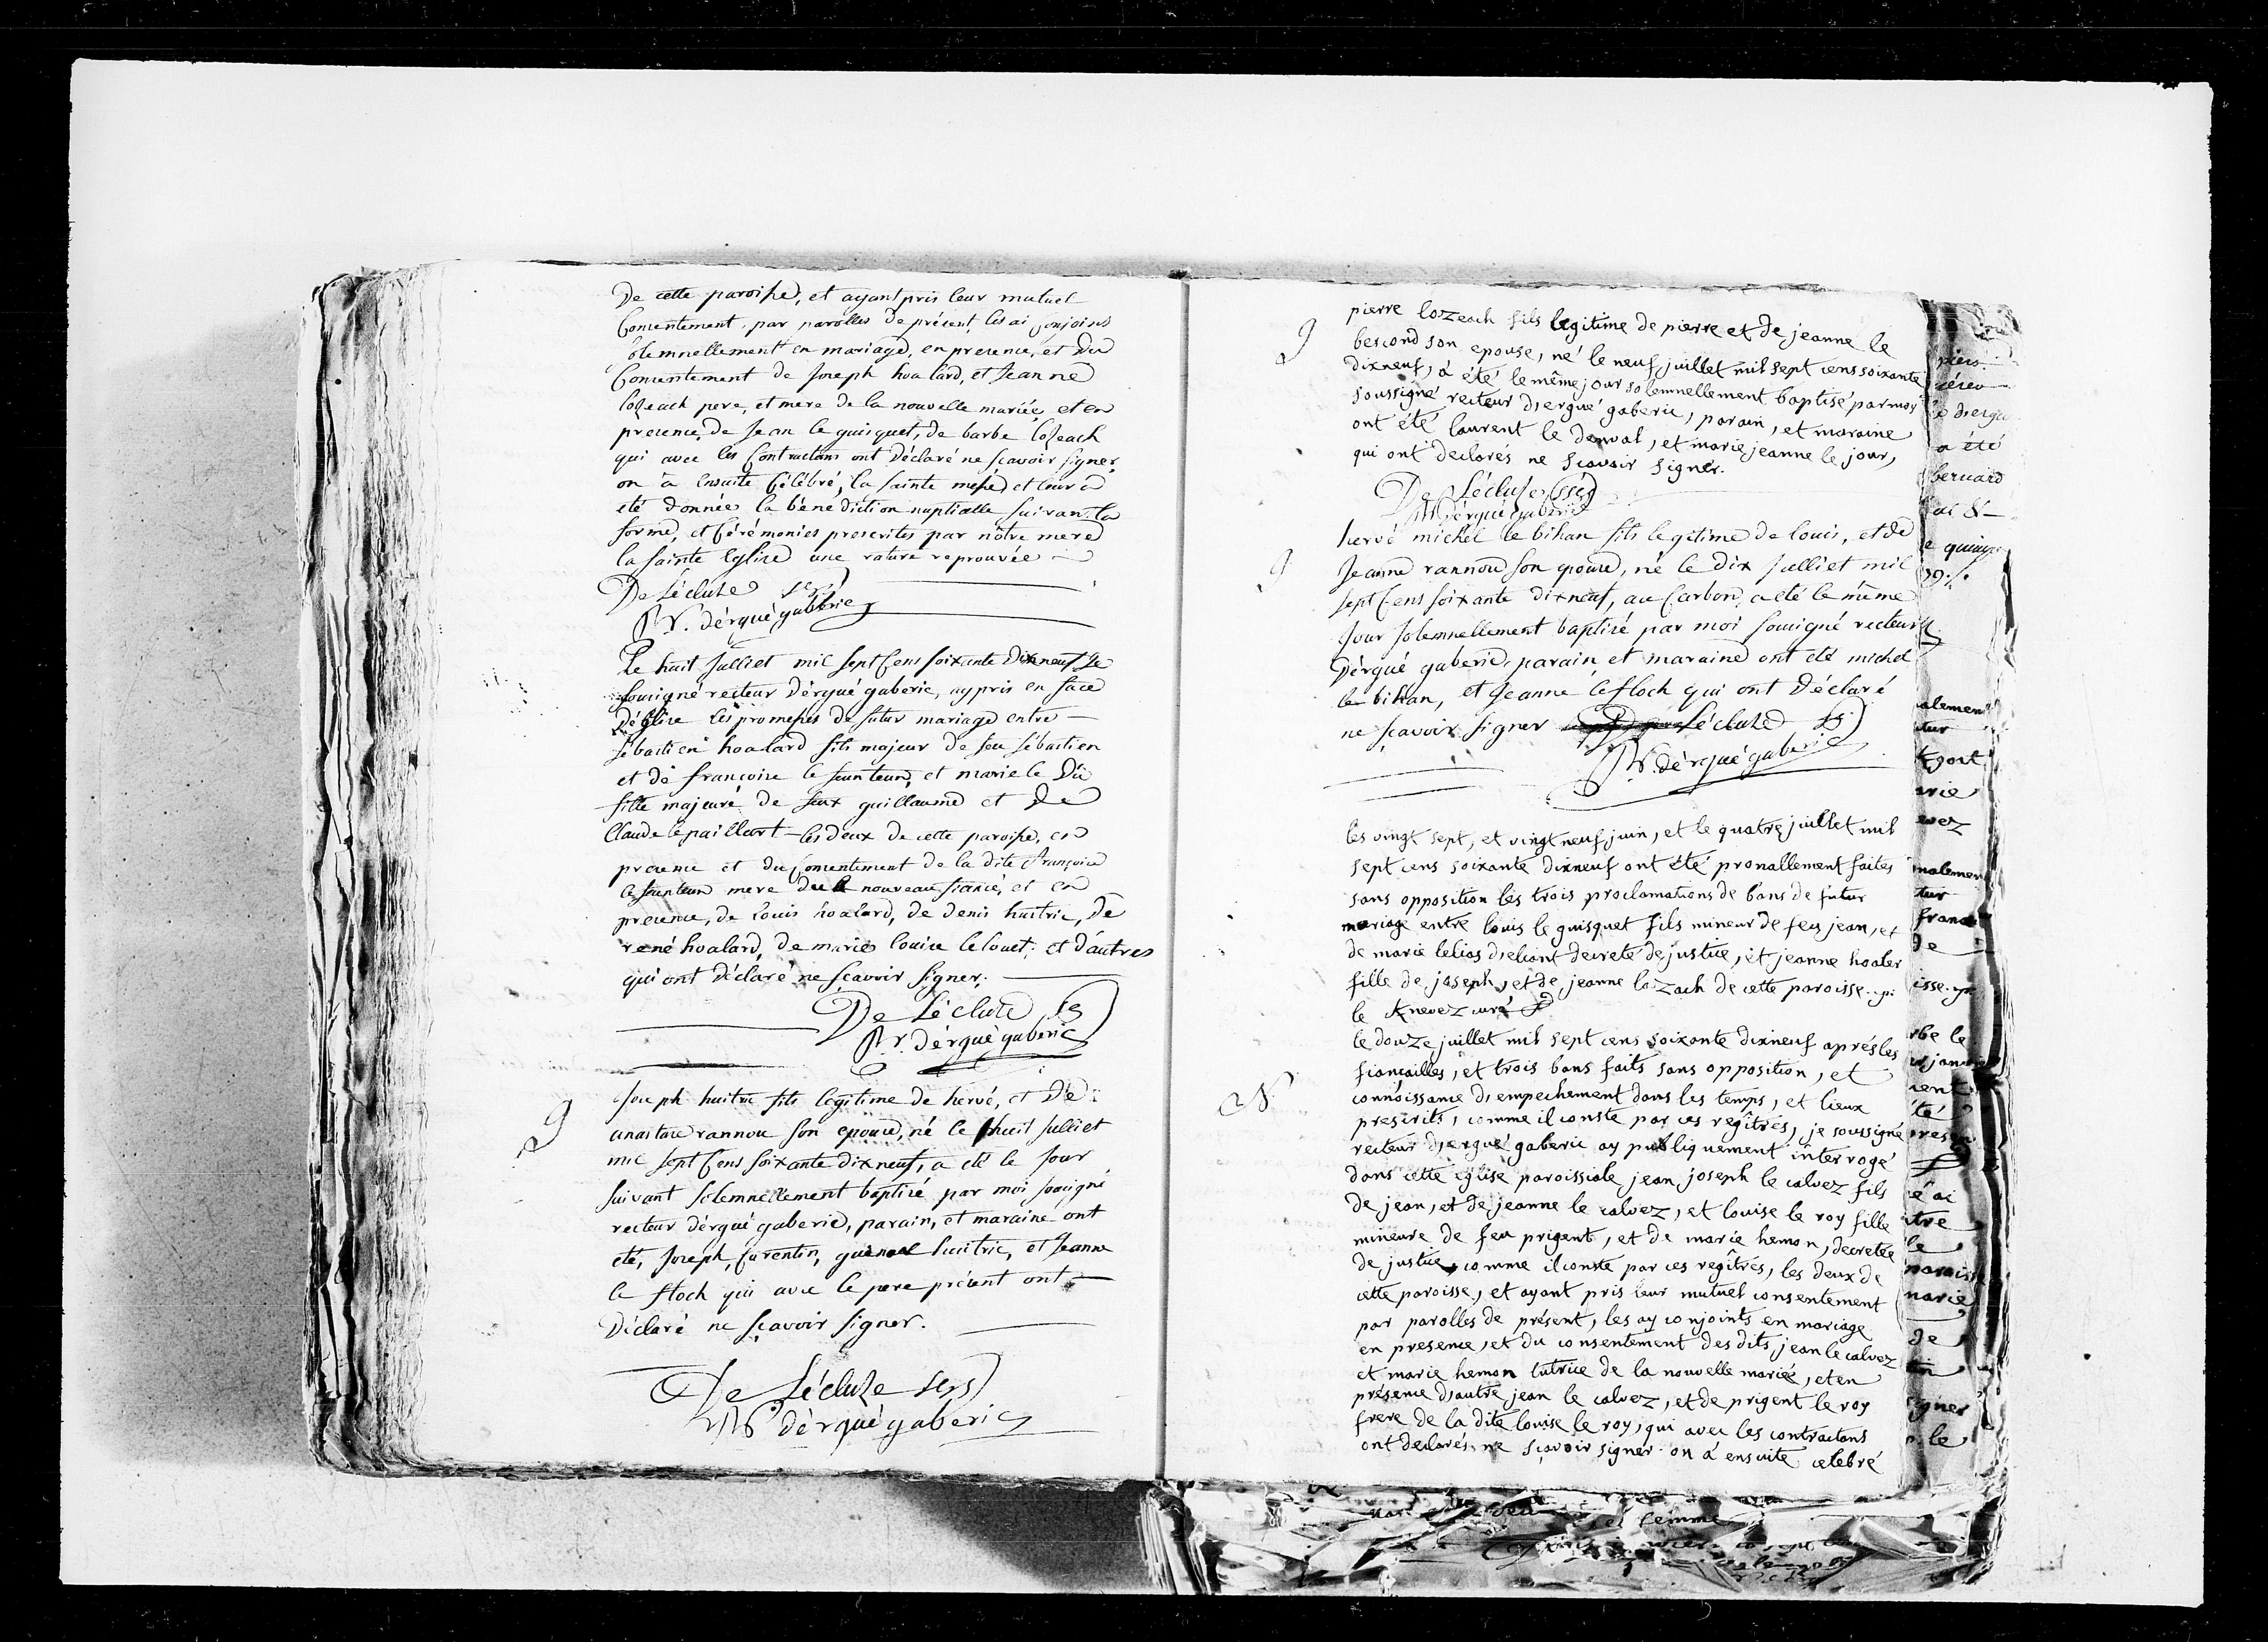 De cette paroisse, et ayant pris leur mutuel
Consentement par parolles de présent, les ai conjoints
solemnellement en mariage, en presence, et du
Consentement de Joseph hoalard, et Jeanne
lozeach pere, et mere de la nouvelle mariée, et en
presence, de Jean le guisquet, de barbe lozeach
qui avec les Contractans ont Déclaré ne sçavoir signer.
on à ensuite Célébré, la sainte messe, et leur a
été donnée la bénédiction nuptialle suivant la
forme, et Cérémonies prescrites par nôtre mere
la sainte Eglise une rature reprouvée
De Lécluze
Rr. d'ergué gaberic
Le huit Julliet mil sept Cens soixante Dix neuf Je
sousigné recteur d'ergué gaberic, ay pris en face
D'église les promesses de futur mariage entre
Sébastien hoalard fils majeur de feu sébastien
et de françoise le feunteun, et marie le Du
fille majeure de feux guillaume et De
Claude le paillart les deux de cette paroisse, en
presence et du Consentement de la dite Françoise
le feunteun mere du nouveau fiancé, et en
presence, de Louis hoalard, de denis huitric, de
rené hoalard, de marie louise le louet, et d'autres
qui ont Déclaré ne sçavoir signer.
De Lécluze
Rr. d'ergué gaberic
J
Joseph huitric fils legitime de hervé, et De
anastase rannou son epouse, né le huit Julliet
mil sept Cens soixante dix neuf, a été le Jour
suivant solemnellement baptisé par moi sousigné
recteur d'ergué gaberic, parain, et maraine ont
été, Joseph, Corentin, guenael huitric, et Jeanne
le floch qui avec le pere présent ont
Déclaré ne sçavoir signer.
De Lécluze
Rr d'ergué gaberic
J
pierre lozeach fils legitime de pierre et de jeanne le
bescond son epouse, né le neuf juillet mil sept cens soixante
dixneuf, à été le même jour solemnellement baptisé par moy
soussigné recteur d'ergué gaberic, parain, et maraine
ont été laurent le denval, et marie jeanne le jour,
qui ont declarés ne scavoir signer.
De Lécluze
Rr d'ergué gaberic
J
hervé michel le bihan fils legitime de louis, et de
Jeanne rannou son epouse, né le dix Julliet mil
sept Cens soixante dix neuf, au Carbon, a été le même
Jour solemnellement baptisé par moi sousigné recteur
D'ergué gaberic, parain et maraine ont été michel
le bihan, et Jeanne le floch qui ont Déclaré
ne sçavoir signer Lécluze
Rr. d'ergué gaberic
les vingt sept, et vingt neuf juin, et le quatre juillet mil
sept cens soixante dixneuf ont été pronallement faites
sans opposition les trois proclamations de bans de futur
mariage entre louis le guisquet fils mineur de feu jean, et
de marie lelias d'eliant decreté de justice, et jeanne hoaler
fille de joseph, et de jeanne lozach de cette paroisse.
le Knevez curé
N
le douze juillet mil sept cens soixante dixneuf aprés les
fiançailles, et trois bans faits sans opposition, et
connoissance d'empechement dans les temps, et lieux
prescrits, comme il conste par ces regîtres, je soussigné
recteur d'ergué gaberic ay publiquement interrogé
dans cette eglise paroissiale jean joseph le calvez fils
de jean, et de jeanne le calvez, et louise le roy fille
mineure de feu prigent, et de marie hemon, decretée
de justice, comme il conste par ces regîtres, les deux de
cette paroisse, et ayant pris leur mutuel consentement
par parolles de présent, les ay conjoints en mariage
en presence, et du consentement des dits jean le calvez
et marie hemon tutrice de la nouvelle mariée, et en
présence d'autre jean le calvez, et de prigent le roy
frere de la dite louise le roy, qui avec les contractans
ont declarés ne sçavoir signer. on à ensuite celebré